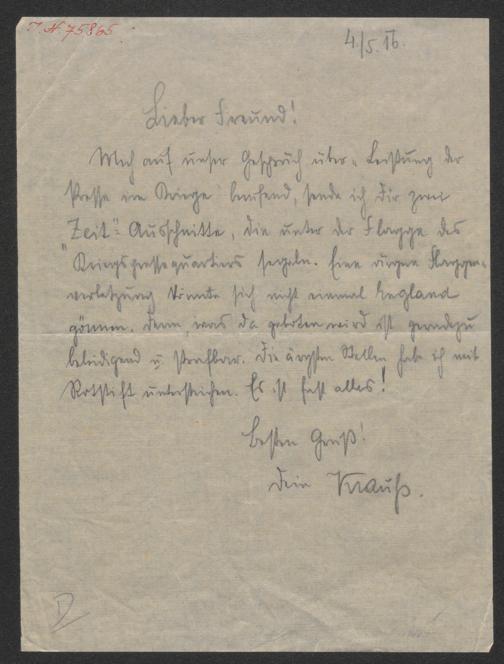 J. N. 75865
4./5.16.
Lieber Freund!
Mich auf unser Gespräch über „Leistung der
Presse im Kriege“ berufend, sende ich Dir zwei
„Zeit“-Ausschnitte, die unter der Flagge des
Kriegspressequartiers segeln. Eine ärgere Flaggen-
verletzung könnte sich nicht einmal England
gönnen. Denn, was da geboten wird ist geradezu
beleidigend u. strafbar. Die ärgsten Stellen habe ich mit
Rotstift unterstrichen. Es ist fast alles!
Besten Gruß!
Dein Krauß.
D